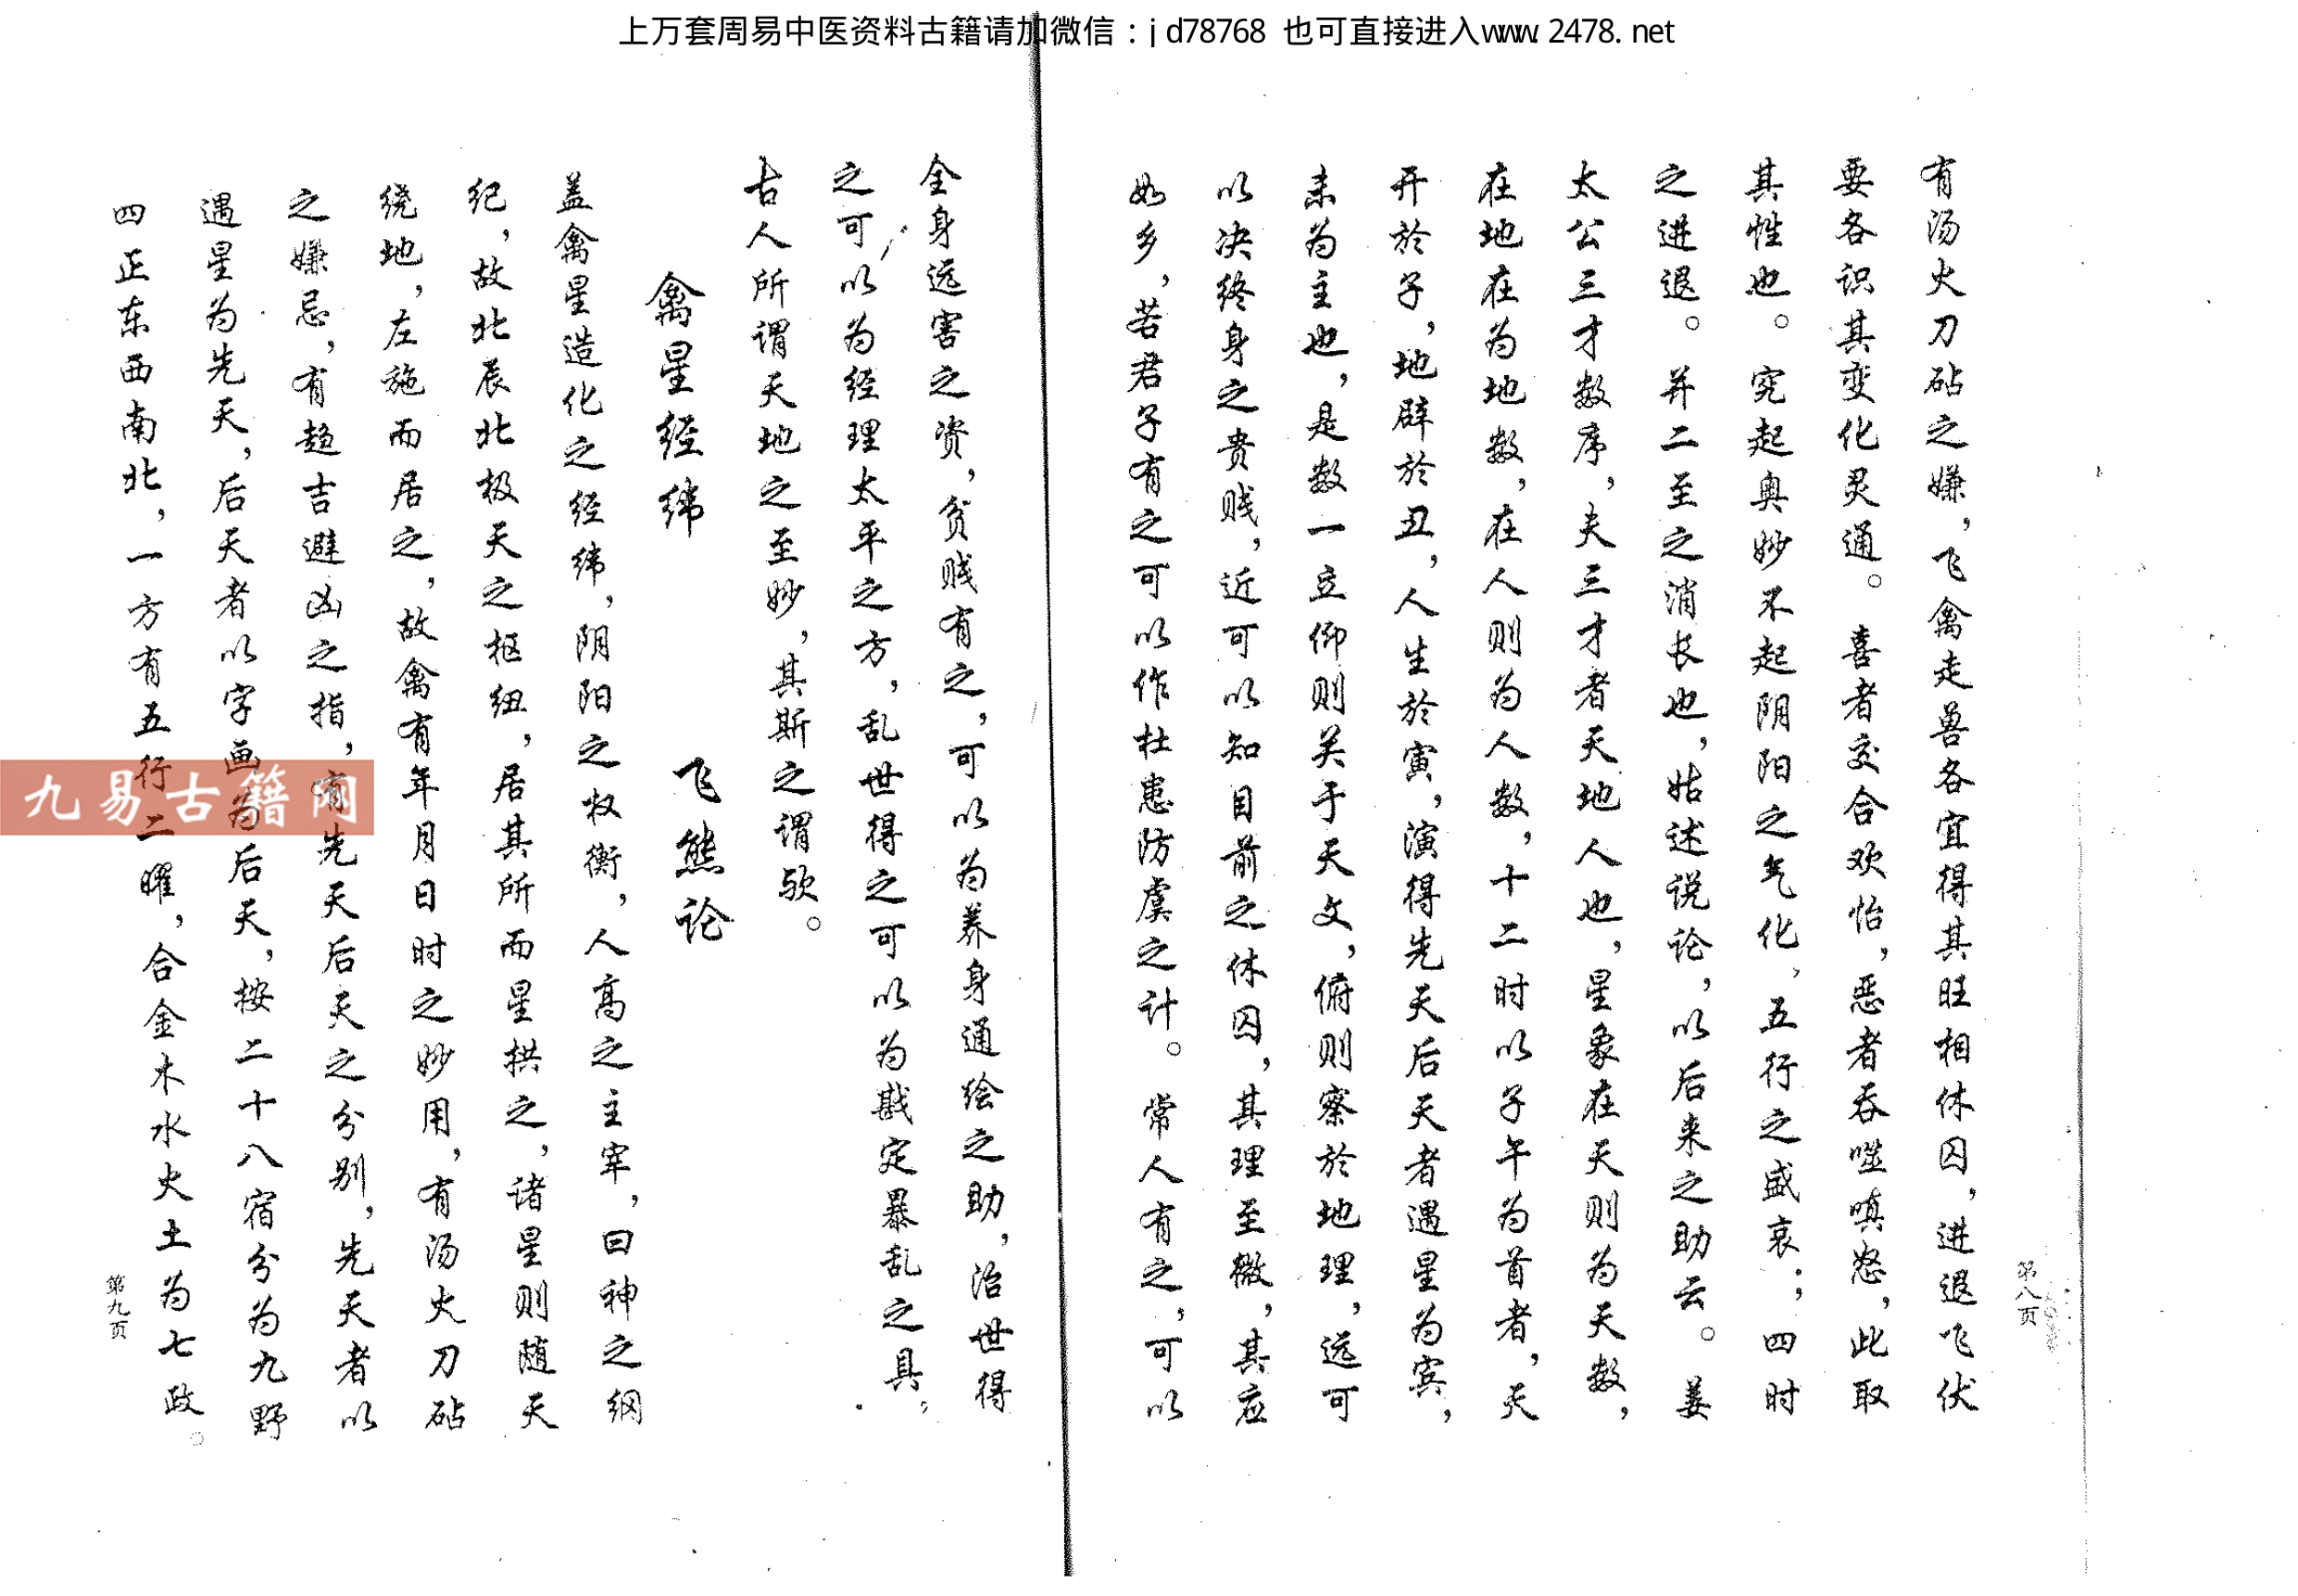 上万套周易中医资料古籍请加微信：jd78768 也可直接进入www.2478.net
有汤火刀砧之嫌，飞禽走兽各宜得其旺相休囚，进退飞伏
要各识其变化灵通。喜者交合欢怡，恶者吞噬嗔怒，此取
其性也。究起奥妙不起阴阳之气化，五行之盛衰；四时
之进退。并二至之消长也，姑述说论，以后来之助云。姜
太公三才数序，夫三才者天地人也，星象在天则为天数，
在地在为地数，在人则为人数，十二时以子午为首者，天
开於子，地辟於丑，人生於寅，演得先天后天者遇星为宾，
未为主也，是数一立仰则关于天文，俯则察於地理，远可
以决终身之贵贱，近可以知目前之休囚，其理至微，其应
如乡，若君子有之可以作杜患防虞之计。常人有之，可以
第八页
全身远害之资，贫贱有之，可以为养身通绘之助，治世得
之可以为经理太平之方，乱世得之可以为戡定暴乱之具，
古人所谓天地之至妙，其斯之谓欤。
禽星经纬 飞熊论
盖禽星造化之经纬，阴阳之权衡，人高之主宰，曰神之纲
纪，故北辰北极天之枢纽，居其所而星拱之，诸星则随天
绕地，左施而居之，故禽有年月日时之妙用，有汤火刀砧
之嫌忌，有趋吉避凶之指，有先天后天之分别，先天者以
遇星为先天，后天者以字画为后天，按二十八宿分为九野
四正东西南北，一方有五行二曜，合金木水火土为七政。
第九页
九易古籍网